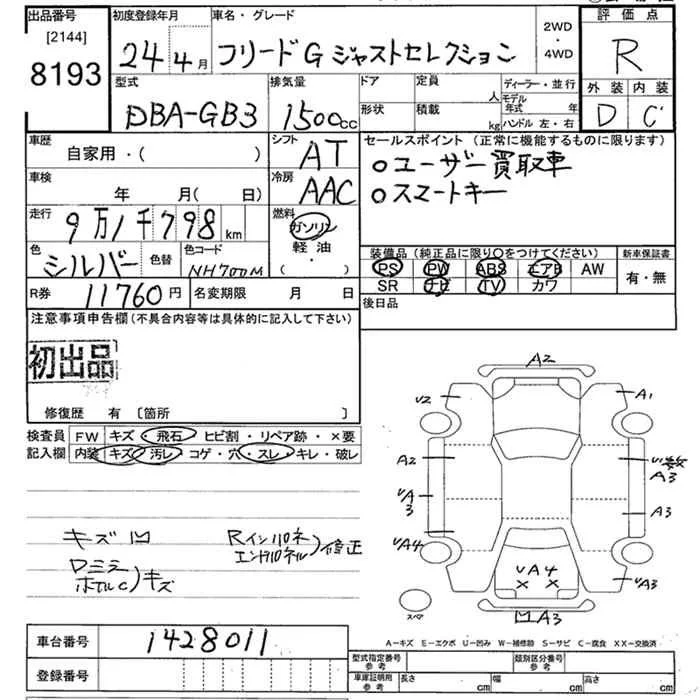 出品番号
[2144]
8193
初度登録年月
24年4月
車名・グレード
フリードG ジャストセレクション
2WD
・
4WD
評価点
R
外装 内装
D C
型式
DBA-GB3
排気量
1500cc
ドア
形状
定員
人
積載
kg
ディーラー・並行
モデル年式 年
ハンドル 左・右
車歴
自家用・( )
シフト
AT
セールスポイント (正常に機能するものに限ります)
○ユーザー買取車
○スマートキー
車検
年 月(日)
冷房
AAC
走行
9万1千798km
燃料
ガソリン
軽油
・
( )
色
シルバー
色替
色コード
NH700M
装備品 (純正品に限り○をつけてください)
新車保証書
PS PW ABS エアB AW
SR ナビ TV カワ
有・無
R券 11760円
名変期限 月 日
後日品
注意事項申告欄(不具合内容等は具体的に記入して下さい)
初出品
修復歴 有 〔箇所 〕
検査員 FW キズ・飛石・ヒビ割・リペア跡・×要
記入欄 内装 キズ・汚レ・コゲ・穴・スレ・キレ・破レ
キズ凹
Rインパネ
エンドパネル)修正
ロミラ
ホイルC)キズ
A2
U2
A1
A2
A3
UA3
A3
UA4
UA4
××
UA3
凹A3
スペア
A-キズ E-エクボ U-凹み W-補修跡 S-サビ C-腐食 XX-交換済
車台番号 1428011
登録番号
型式指定番号
参考
類別区分番号
参考
車庫証明用
参考
長さ cm 幅 cm 高さ cm